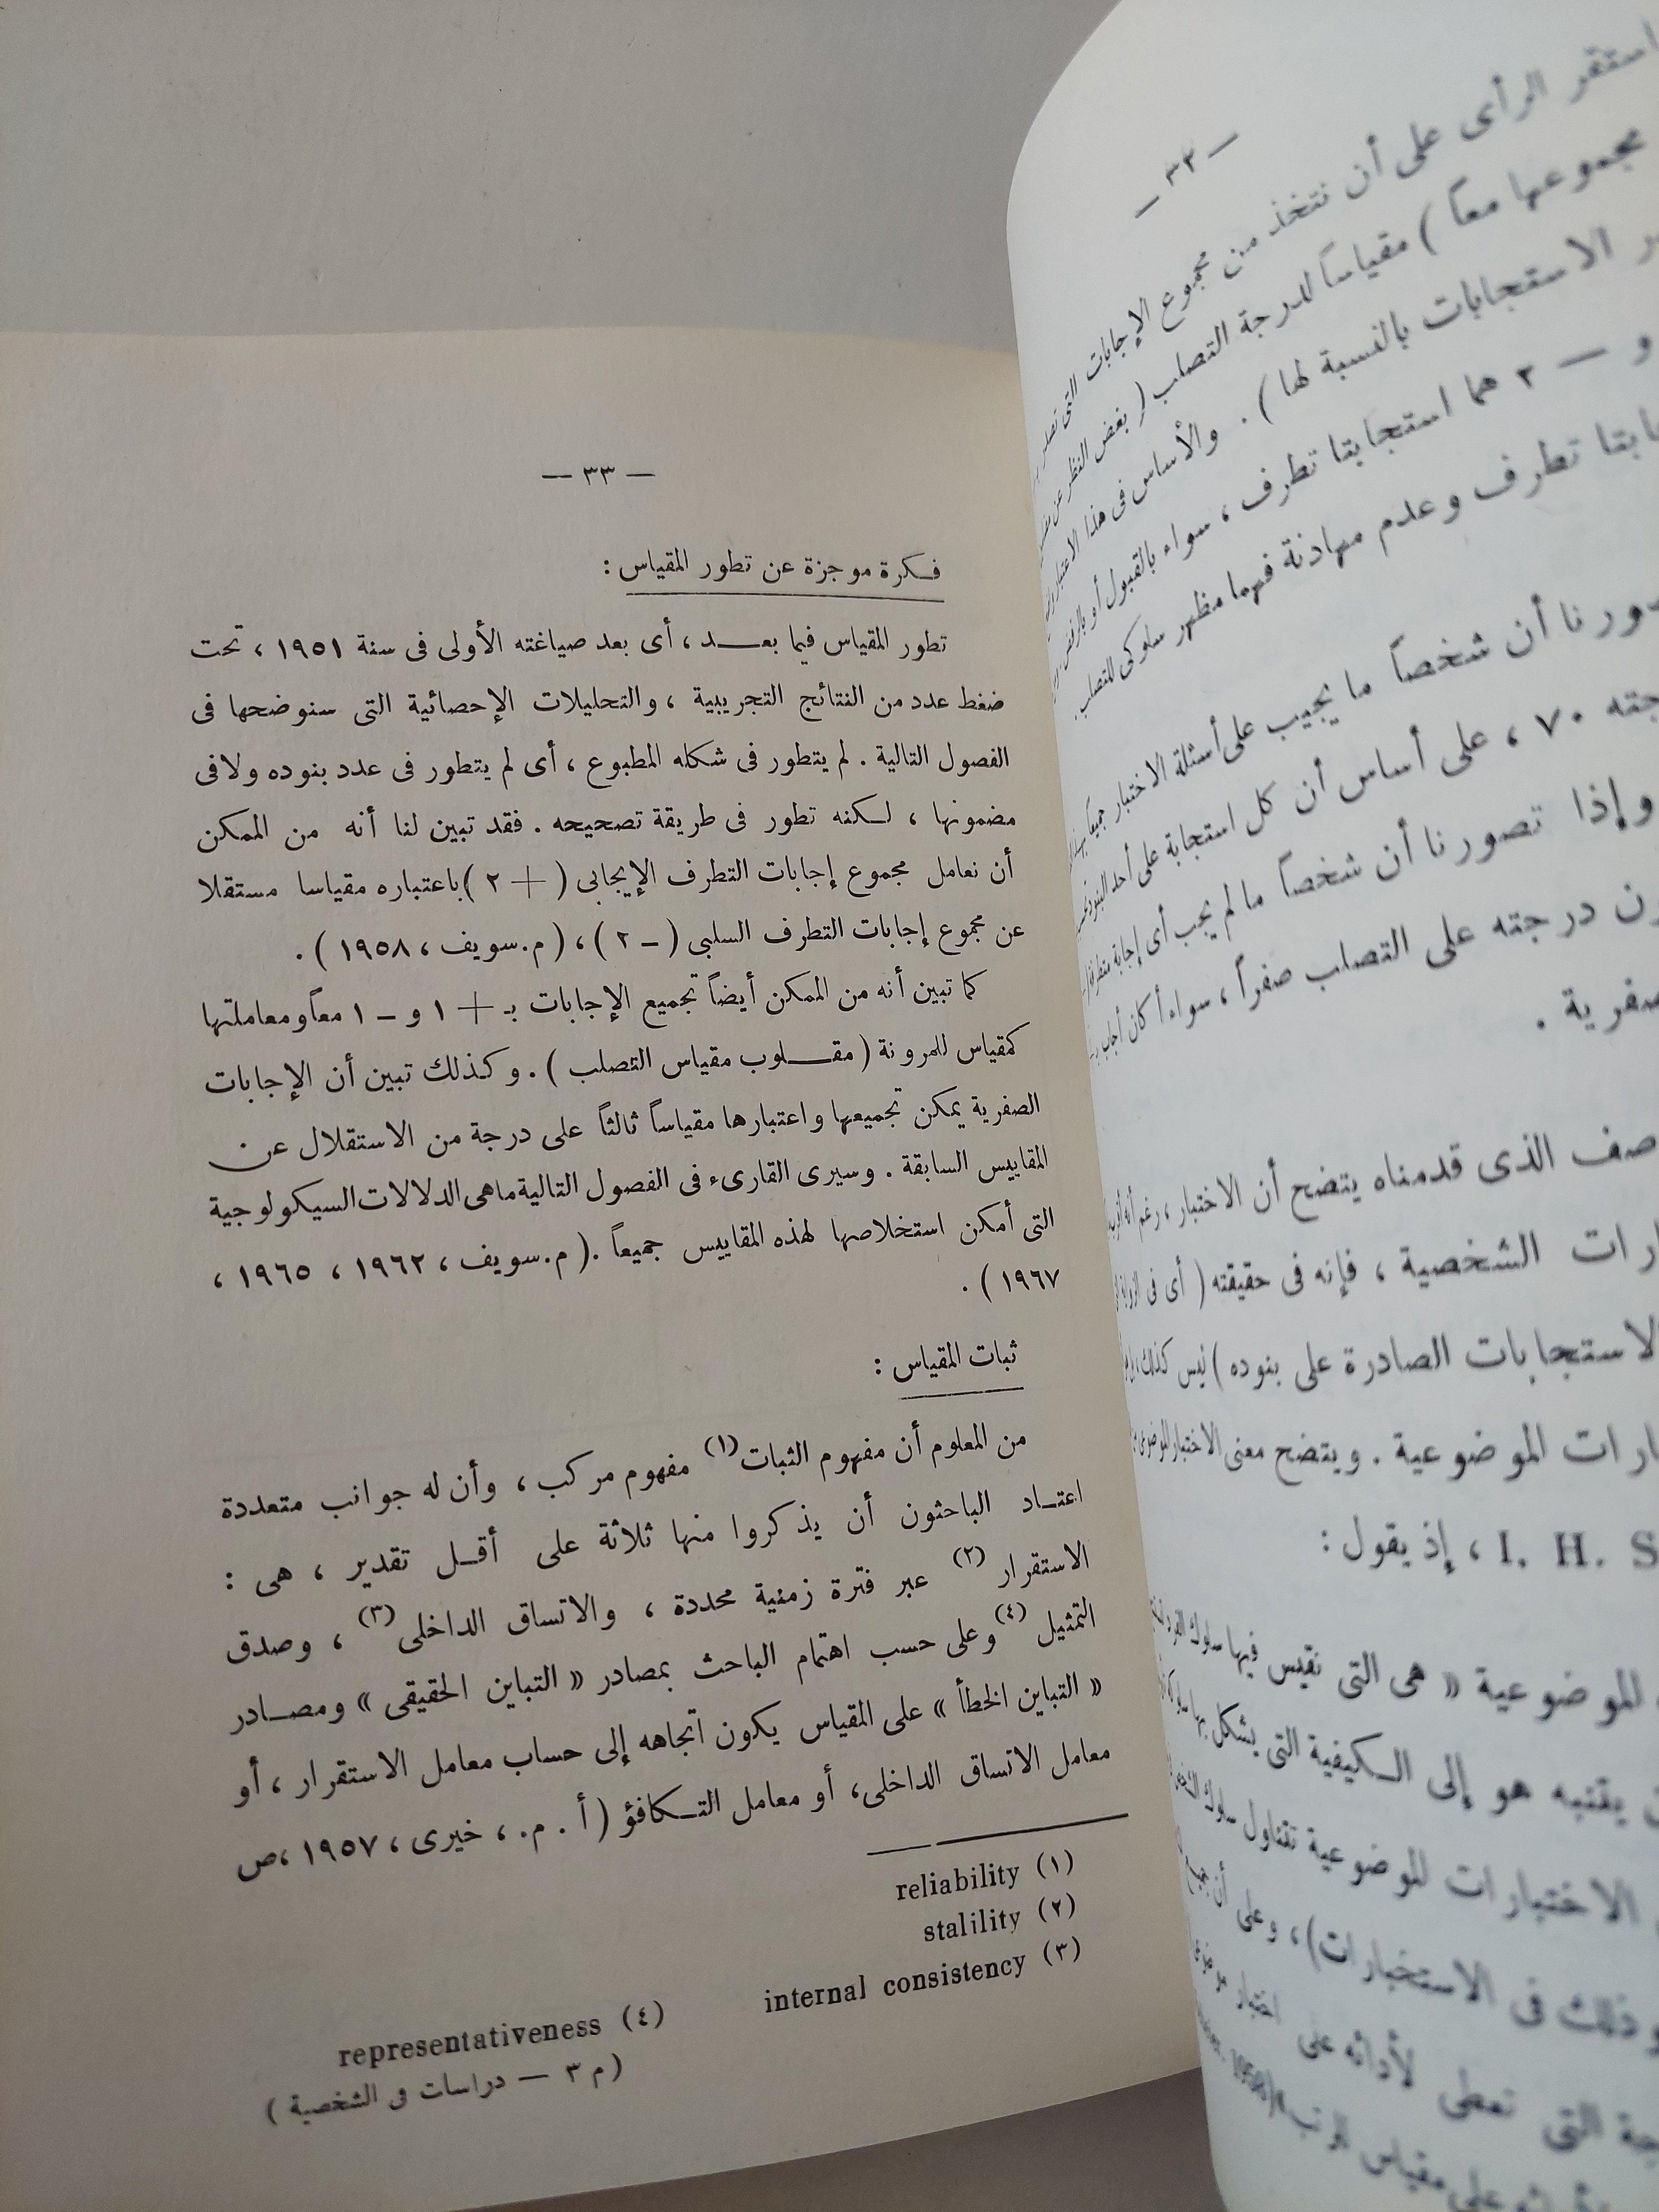 — ٣٢ —
استقر الرأى على أن نتخذ من مجموع الإجابات التى
مجموعها معاً ) مقياساً لدرجة التصلب ( بغض النظر عن
الاستجابات بالنسبة لها ) . والأساس فى هذا الاعتبار
و — ٢ هما استجابتا تطرف ، سواء بالقبول أو بالرفض
تطرف وعدم مهادنة فهما مظهر سلوكى للتصلب .
أن شخصاً ما يجيب على أسئلة الاختبار جميعاً
٧٠ ، على أساس أن كل استجابة على أحد البنود
وإذا تصورنا أن شخصاً ما لم يجب أى إجابة متطرفة
درجته على التصلب صفراً ، سواء أكان أجاب
الذى قدمناه يتضح أن الاختبار ، رغم أنه
الشخصية ، فإنه فى حقيقته ( أى فى
الاستجابات الصادرة على بنوده ) ليس كذلك
الموضوعية . ويتضح معنى الاختبار الموضوعى
I. H. S ، إذ يقول :
الموضوعية « هى التى نقيس فيها سلوك الفرد
هو إلى الكيفية التى يشكل بها
الاختبارات الموضوعية تتناول سلوك
وذلك فى الاستخبارات ) ، وعلى أن
التى تعطى لأدائه على اختبار
على مقياس الرتب
— ٣٣ —
فكرة موجزة عن تطور المقياس :
تطور المقياس فيما بعد ، أى بعد صياغته الأولى فى سنة ١٩٥١ ، تحت
ضغط عدد من النتائج التجريبية ، والتحليلات الإحصائية التى سنوضحها فى
الفصول التالية . لم يتطور فى شكله المطبوع ، أى لم يتطور فى عدد بنوده ولا فى
مضمونها ، لكنه تطور فى طريقة تصحيحه . فقد تبين لنا أنه من الممكن
أن نعامل مجموع إجابات التطرف الإيجابى ( + ٢ ) باعتباره مقياسا مستقلا
عن مجموع إجابات التطرف السلبى ( – ٢ ) ، ( م.سويف ، ١٩٥٨ ) .
كما تبين أنه من الممكن أيضاً تجميع الإجابات بـ + ١ و – ١ معاً ومعاملتها
كمقياس للمرونة ( مقلوب مقياس التصلب ) . وكذلك تبين أن الإجابات
الصفرية يمكن تجميعها واعتبارها مقياساً ثالثاً على درجة من الاستقلال عن
المقاييس السابقة . وسيرى القارىء فى الفصول التالية ماهى الدلالات السيكولوجية
التى أمكن استخلاصها لهذه المقاييس جميعاً . ( م.سويف ، ١٩٦٢ ، ١٩٦٥ ،
١٩٦٧ ) .
ثبات المقياس :
من المعلوم أن مفهوم الثبات(١) مفهوم مركب ، وأن له جوانب متعددة
اعتاد الباحثون أن يذكروا منها ثلاثة على أقل تقدير ، هى :
الاستقرار (٢) عبر فترة زمنية محددة ، والاتساق الداخلى(٣) ، وصدق
التمثيل (٤) وعلى حسب اهتمام الباحث بمصادر « التباين الحقيقى » ومصادر
« التباين الخطأ » على المقياس يكون اتجاهه إلى حساب معامل الاستقرار ، أو
معامل الاتساق الداخلى، أو معامل التكافؤ ( أ . م. ، خيرى ، ١٩٥٧ ، ص
(١) reliability
(٢) stalility
(٣) internal consistency
(٤) representativeness
( م ٣ — دراسات فى الشخصية )